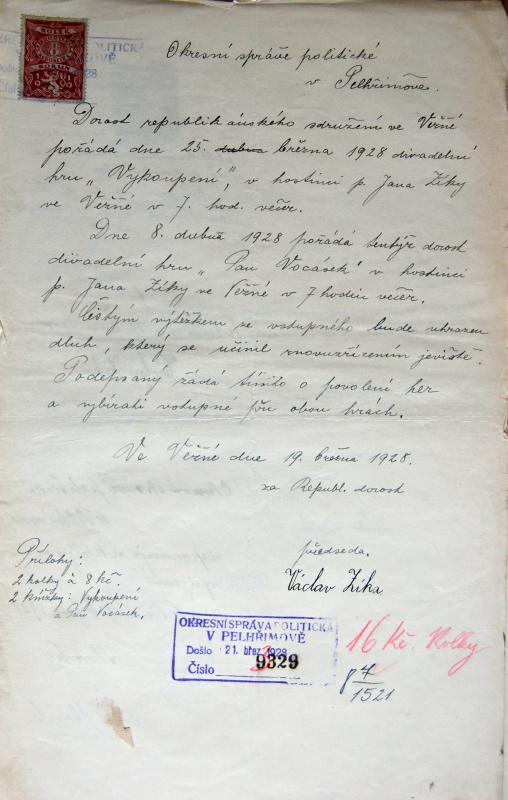 KOLEK
8
KORUN
OKRESNÍ SPRÁVA POLITICKÁ
V PELHŘIMOVĚ
Došlo
1928
Číslo
Okresní správě politické
v Pelhřimově.
Dorost republikánského sdružení ve Věžné
pořádá dne 25. dubna března 1928 divadelní
hru „Vykoupení", v hostinci p. Jana Ziky
ve Věžné v 7. hod. večer.
Dne 8. dubna 1928 pořádá tentýž dorost
divadelní hru „Pan Vocásek" v hostinci
p. Jana Ziky ve Věžné v 7 hodin večer.
Čistým výtěžkem se vstupného bude uhrazen
dluh, který se učinil znovuzřízením jeviště.
Podepsaný žádá tímto o povolení her
a vybírati vstupné při obou hrách.
Ve Věžné dne 19. března 1928.
za Republ. dorost
předseda.
Václav Zika
Přílohy:
2 kolky à 8 kč.
2 knížky: Vykoupení
a Pan Vocásek.
OKRESNÍ SPRÁVA POLITICKÁ
V PELHŘIMOVĚ
Došlo 21. břez. 1928
Číslo 9329
16 Kč. Kolky
1521